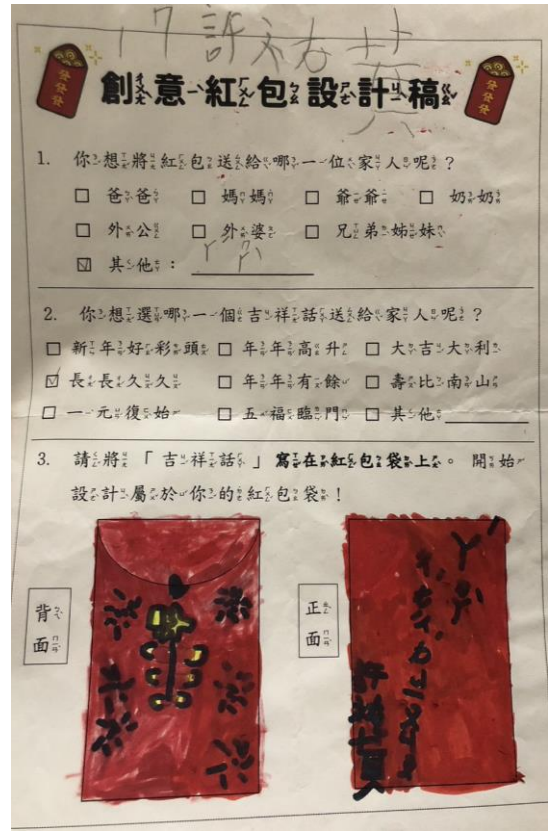 17 許祐蓂
發發發
創意紅包設計稿
發發發
1. 你想將紅包送給哪一位家人呢？
□ 爸爸 □ 媽媽 □ 爺爺 □ 奶奶
□ 外公 □ 外婆 □ 兄弟姊妹
☑ 其他：
2. 你想選哪一個吉祥話送給家人呢？
□ 新年好彩頭 □ 年年高升 □ 大吉大利
☑ 長長久久 □ 年年有餘 □ 壽比南山
□ 一元復始 □ 五福臨門 □ 其他
3. 請將「吉祥話」寫在紅包袋上。開始
設計屬於你的紅包袋！
背面
正面